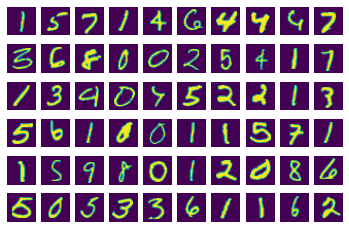 1 5 7 1 4 6 4 4 9 7
3 6 8 0 0 2 5 4 1 7
1 3 9 0 4 5 2 2 1 3
5 6 1 0 0 1 1 5 7 1
1 5 9 8 0 1 2 0 8 6
5 0 5 3 3 6 1 1 6 2